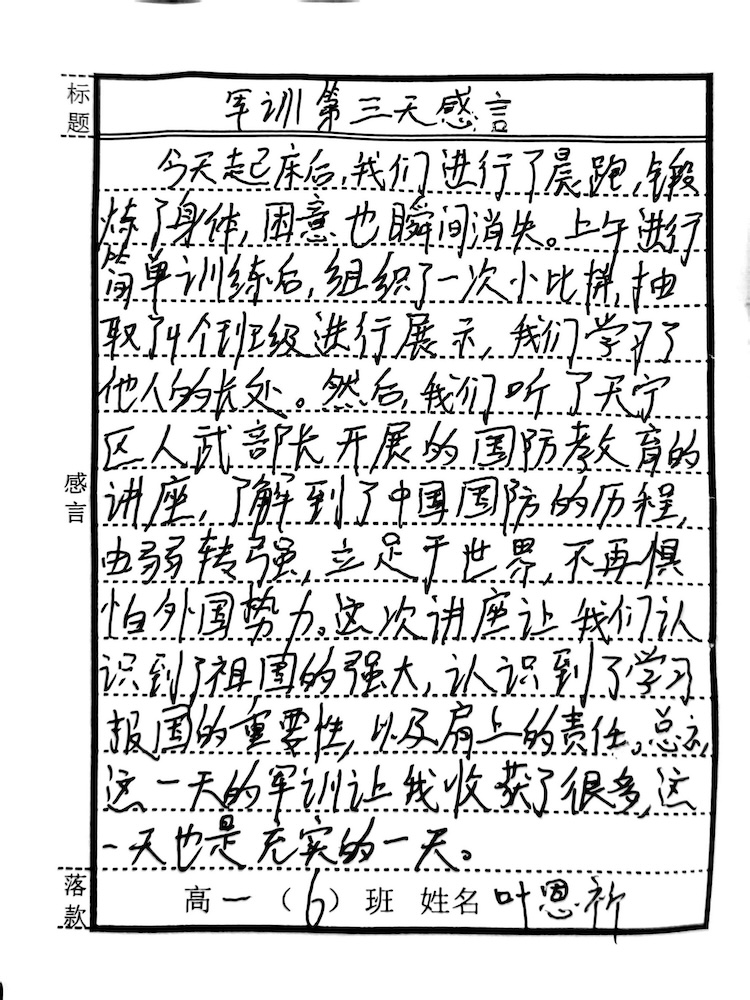 标题
军训第三天感言
今天起床后,我们进行了晨跑,锻
炼了身体,困意也瞬间消失。上午进行
简单训练后,组织了一次小比拼,抽
取了4个班级进行展示,我们学习了
他人的长处。然后,我们听了天宁
区人武部长开展的国防教育的
讲座,了解到了中国国防的历程,
由弱转强,立足于世界,不再惧
怕外国势力。这次讲座让我们认
识到了祖国的强大,认识到了学习
报国的重要性,以及肩上的责任。总之,
这一天的军训让我收获了很多,这
一天也是充实的一天。
感言
落款
高一(6)班 姓名 叶恩祈